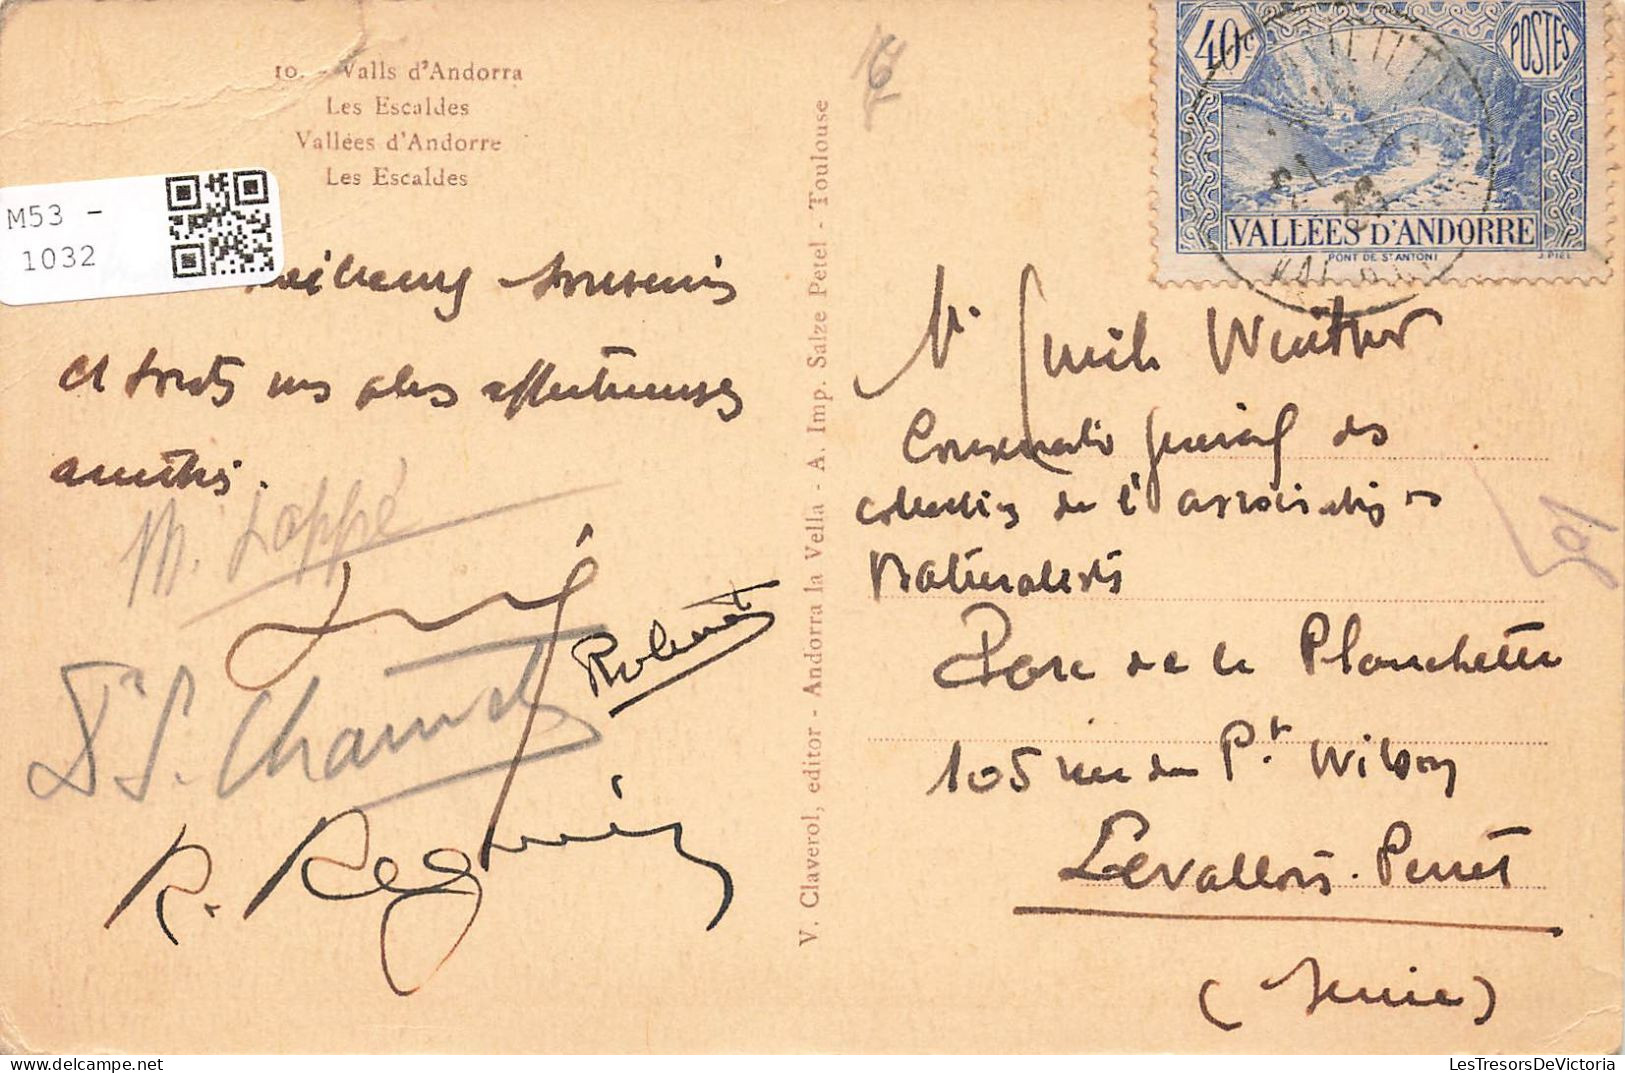 10. - Valls d'Andorra
Les Escaldes
Vallées d'Andorre
Les Escaldes
M53 -
1032
40c
POSTES
VALLÉES D'ANDORRE
PONT DE St ANTONI
J. PIEL
V. Claverol, editor - Andorra la Vella - A. Imp. Salze Petel - Toulouse
Meilleurs souvenirs
et toutes nos plus affectueuses
amitiés.
M. Loppé
Dr S. Chauvet
R. Regnier
Mr Emile Wuitner
Conservateur général des
collections de l'association
Naturalistes
Parc de la Planchette
105 rue du Pt Wilson
Levallois-Perret
(Seine)
LesTresorsDeVictoria